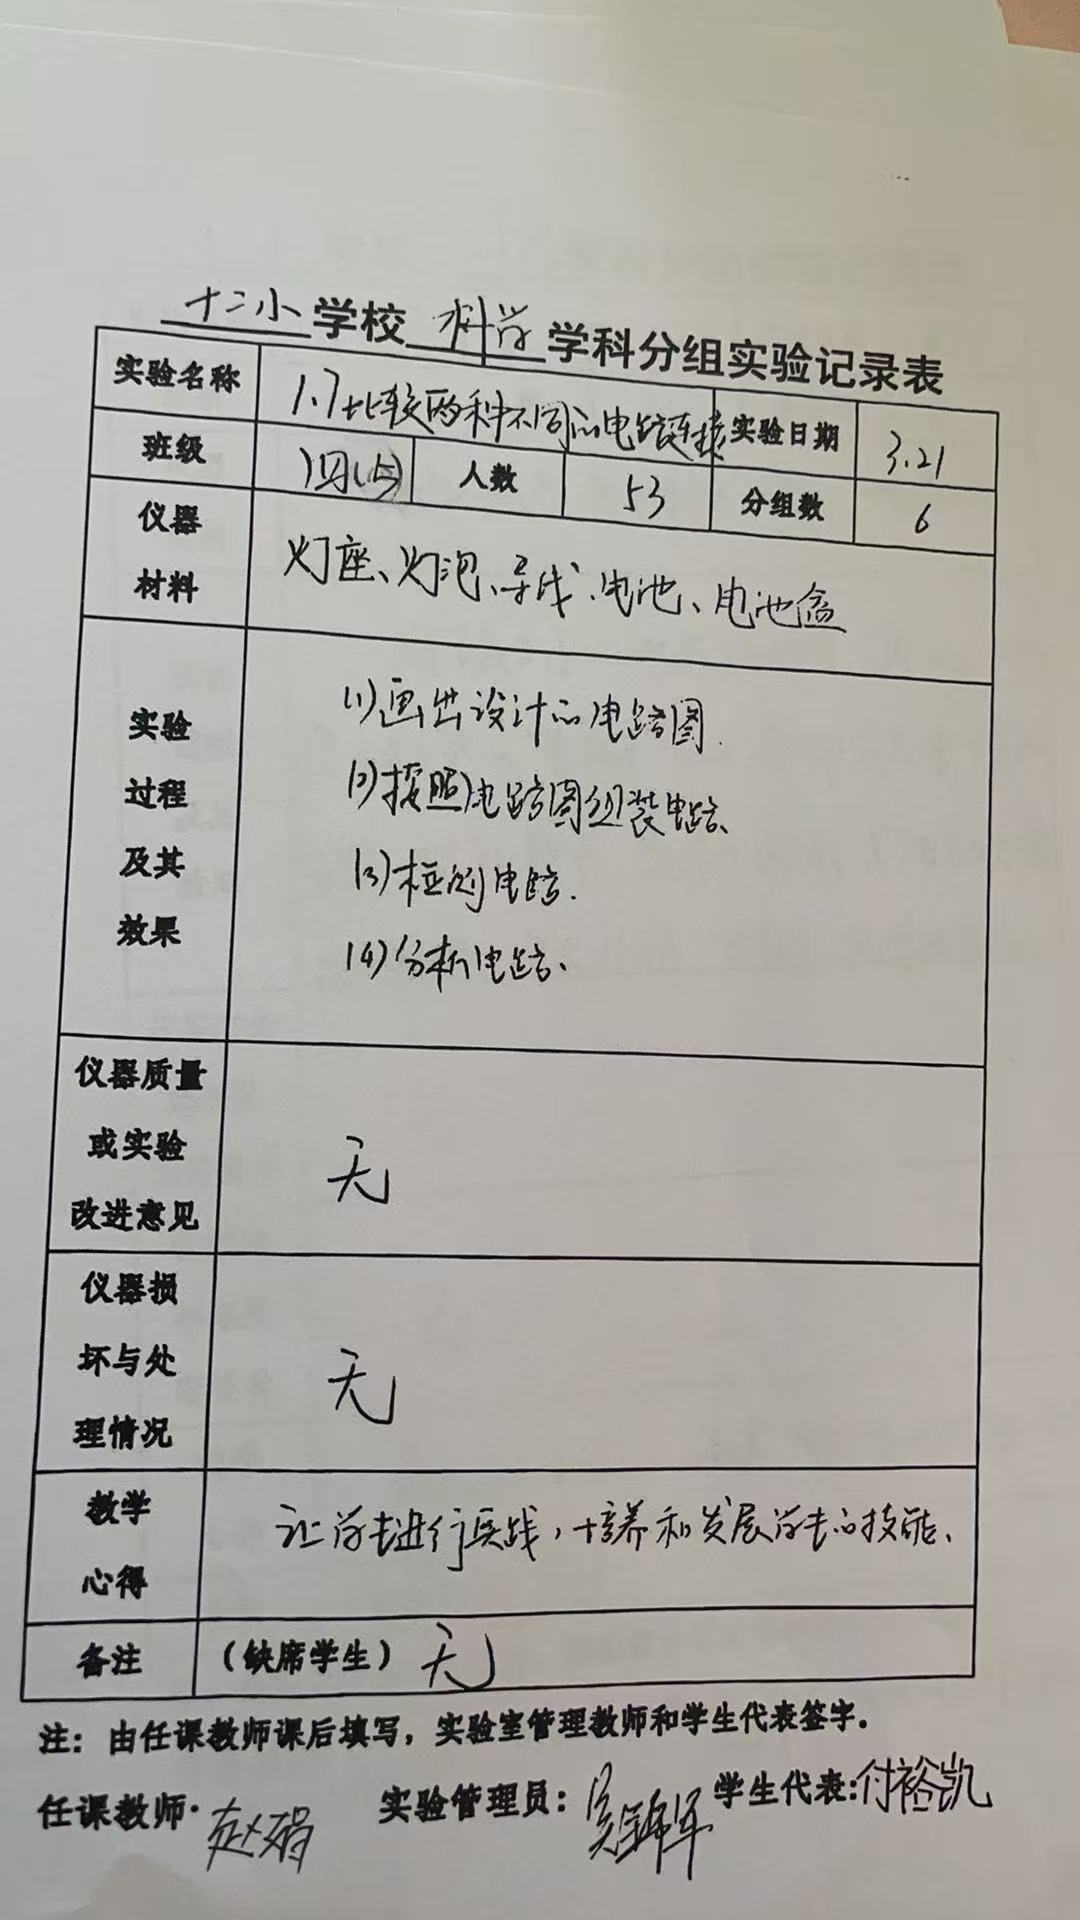 十二小学校 科学 学科分组实验记录表
实验名称 1.7比较两种不同的电路连接 实验日期 3.21
班级 四(5) 人数 53 分组数 6
仪器
材料
灯座、灯泡、导线、电池、电池盒
实验
过程
及其
效果
(1)画出设计的电路图.
(2)按照电路图组装电路、
(3)检测电路.
(4)分析电路、
仪器质量
或实验
改进意见
无
仪器损
坏与处
理情况
无
教学
心得
让学生进行实践，培养和发展学生的技能、
备注 (缺席学生) 无
注：由任课教师课后填写，实验室管理教师和学生代表签字.
任课教师: 赵娟 实验管理员: 吴锦军 学生代表:付裕凯